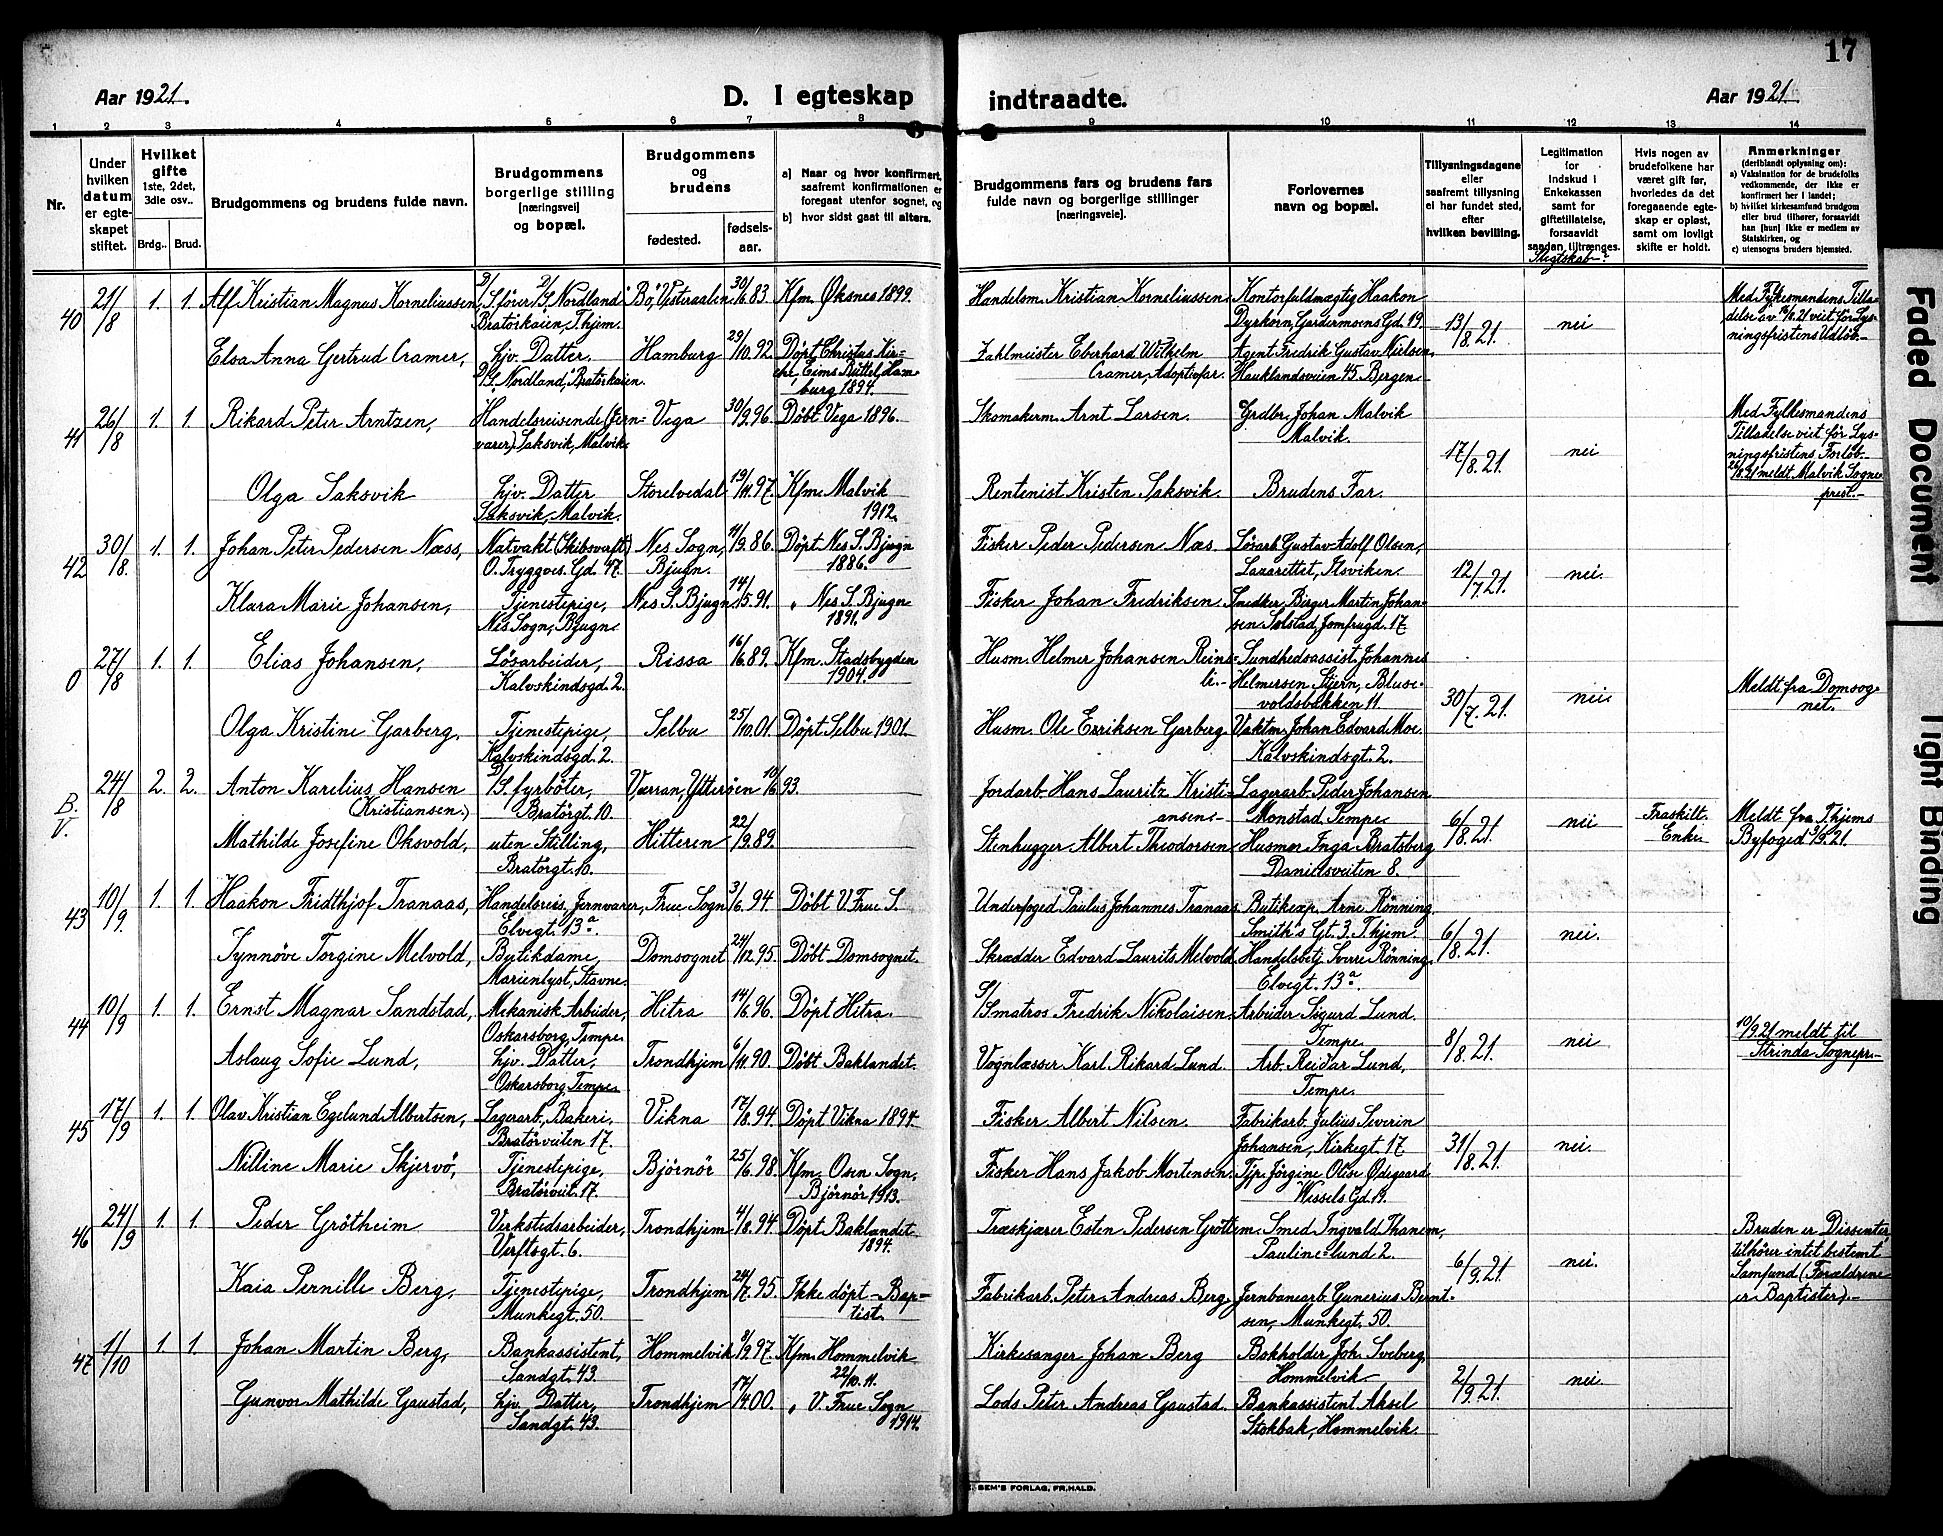 17
Aar 1921.
D. I egteskap indtraadte.
Aar 1921.
1 2 3 4 5 6 7 8 9 10 11 12 13 14
Nr.
Under hvilken datum er egteskapet stiftet.
Hvilket gifte 1ste, 2det, 3die osv..
Brdg.. Brud.
Brudgommens og brudens fulde navn.
Brudgommens borgerlige stilling (næringsvei) og bopæl.
Brudgommens og brudens
fødested.
fødselsaar.
a) Naar og hvor konfirmert, saafremt konfirmationen er foregaat utenfor sognet, og
b) hvor sidst gaat til alters.
Brudgommens fars og brudens fars fulde navn og borgerlige stillinger (næringsveie).
Forlovernes navn og bopæl.
Tillysningsdagene eller saafremt tillysning ei har fundet sted, efter hvilken bevilling.
Legitimation for Indskud i Enkekassen samt for giftetillatelse, forsaavidt saadan tiltrænges.
Slegtskab?
Hvis nogen av brudefolkene har været gift før, hvorledes da det foregaaende egteskap er opløst, samt om lovligt skifte er holdt.
Anmerkninger (deriblandt oplysning om): a) Vaksination for de brudefolks vedkommende, der ikke er konfirmert her i landet; b) hvilket kirkesamfund brudgom eller brud tilhører, forsaavidt han [hun] ikke er medlem av Statskirken, og c) utensogns bruders hjemsted.
40 21/8 1. 1. Alf Kristian Magnus Korneliussen D/S. fører D/S. "Nordland" Bratørkaien, Thjem. Bö, Vesteraalen 30/6.83. Kfm. Øksnes 1899. Handelsm. Kristian Korneliussen. Kontorfuldmægtig Haakon Dyrkorn, Gardermoens Gd. 19. 13/8.21. nei
Med Fylkesmandens Tilladelse av 19/8.21 viet før Lysningsfristens Udløb.
Elsa Anna Gertrud Cramer, hjv. Datter. D/S. "Nordland," Bratørkaien. Hamburg 29/10.92. Döpt Christus Kirche, Eims Büttel, Hamburg 1894. Zahlmeister Eberhard Wilhelm Cramer, Adoptivfar. Agent Fredrik Gustav Nielsen, Hauklandsveien 45 Bergen
41 26/8 1. 1. Rikard Peter Arntzen, Handelsreisende (Jernvarer) Saksvik, Malvik Vega 30/9.96. Døbt Vega 1896. Skomakerm. Arnt Larsen. Grdbr. Johan Malvik Malvik. 17/8.21. nei
Med Fylkesmandens Tilladelse viet før Lysningsfristens Forløb. 26/8.21 meldt Malvik Sogneprest.
Olga Saksvik hjv. Datter Saksvik, Malvik. Storelvedal 13/11.97. Kfm. Malvik 1912. Rentenist Kristen Saksvik. Brudens Far.
42 30/8. 1. 1. Johan Peter Pedersen Næss, Natvakt (Skibsverft) O. Tryggves. Gd. 47. Nes Sogn, Bjugn. 11/9.86. Döpt Nes S. Bjugn 1886. Fisker Peder Pedersen Næs Løsarb. Gustav Adolf Olsen, Lazarettet, Ilsviken. 12/7.21. nei.
Klara Marie Johansen, Tjenestepige, Nes Sogn, Bjugn. Nes S. Bjugn 14/5.91. " Nes S. Bjugn 1891. Fisker Johan Fredriksen. Smedker. Birger Martin Johansen Solstad, Jomfrugd. 17.
0 27/8 1. 1. Elias Johansen, Lösarbeider, Kalvskindsgd. 2. Rissa 16/6.89. Kfm. Stadsbygden 1904. Husm. Helmer Johansen Reinsli. Sundhedsassist. Johannes Helmersen Stjern, Blusevoldsbakken 11. 30/7.21. nei. Meldt fra Domsognet.
Olga Kristine Garberg. Tjenestepige, Kalvskindsgd. 2. Selbu 25/10.01. Döpt Selbu 1901. Husm. Ole Erriksen Garberg. Vaktm. Johan Edvard Moe. Kalvskindsgt. 2.
B./V. 24/8 2. 2. Anton Karelius Hansen (Kristiansen.) D/S. fyrböter, Bratörgt. 10. Værran, Ytterøen 10/6 93. Jordarb. Hans Lauritz Kristiansen. Lagerarb. Peder Johansen Monstad, Tempe 6/8.21. nei Fraskilt. Enke. Meldt fra Thjems Byfoged 3/9.21.
Mathilde Josefine Oksvold, uten Stilling, Bratörgt. 10. Hitteren 22/9.89. Stenhugger Albert Theodorsen Husmor Inga Bratsberg Danielsveiten 8.
43 10/9. 1. 1. Haakon Fridthjof Tranaas, Handelsreis. Jernvarer, Elvegt. 13ª. Frue Sogn 3/6.94. Döbt V. Frue S. Underfoged Paulus Johannes Tranaas Butikexp. Arne Rönning. Smith's Gt. 3. Thjem. 6/8.21. nei.
Synnöve Torgine Melvold, Butikdame, Marienlyst, Stavne. Domsognet 24/12.95. Döbt Domsognet. Skrædder Edvard Laurits Melvold. Handelsbetj. Sverre Rönning. Elvegt. 13ª.
44 10/9 1. 1. Ernst Magnar Sandstad, Mekanisk Arbeider, Oskarsborg, Tempe. Hitra 14/6.96. Döpt Hitra. S/Smatros Fredrik Nikolaisen. Arbeider Sigurd Lund. Tempe. 8/8.21. nei 10/9.21 meldt til Strinda Sognepr.
Aslaug Sofie Lund, hjv. Datter, Oskarsborg, Tempe. Trondhjem 6/11.90. Döbt Baklandet. Vognlæsser Karl Rikard Lund. Arb. Reidar Lund, Tempe.
45 17/9 1. 1. Olav Kristian Egelund Albertsen, Lagerarb., Bakeri, Bratörveiten 17. Vikna 17/8.94. Döpt Vikna 1894. Fisker Albert Nilsen. Fabrikarb. Julius Severin Johansen, Kirkegt. 17. 31/8.21. nei.
Nilline Marie Skjervö, Tjenestepige, Bratörveit. 17. Björnör 25/6.98. Kfm. Osen Sogn, Björnör 1913. Fisker Hans Jakob Mortensen. Tjp. Jörgine Olise Ødegaard Wessels Gd. 19.
46 24/9 1. 1. Peder Grötheim Verkstedsarbeider, Verftsgt. 6. Trondhjem 4/8.94. Döpt Baklandet 1894. Træskjærer Esten Pedersen Gröttem. Smed Ingvald Thanem, Paulinelund 2. 6/9.21. nei. Bruden er Dissenter, tilhörer intet bestemt Samfund (Forældrene er Baptister).
Kaia Pernille Berg, Tjenestepige, Munkegt. 50. Trondhjem 24/7.95. Ikke döpt - Baptist. Fabrikarb. Peter Andreas Berg, Jernbanearb. Gunerius Berntsen, Munkegt. 50.
47 1/10 1. 1. Johan Martin Berg, Bankassistent, Sandgt. 43. Hommelvik 8/9.97. Kfm. Hommelvik 22/10.11. Kirkesanger Johan Berg Bokholder Joh. Sveberg, Hommelvik 2/9.21. nei.
Gunvor Mathilde Gaustad, hjv. Datter, Sandgt. 43. Trondhjem 17/4.00. " V. Frue Sogn 1914. Lods Peter Andreas Gaustad. Bankassistent Aksel Stokbak, Hommelvik.
SEM'S FORLAG, FR.HALD.
Faded Document
Tight Binding